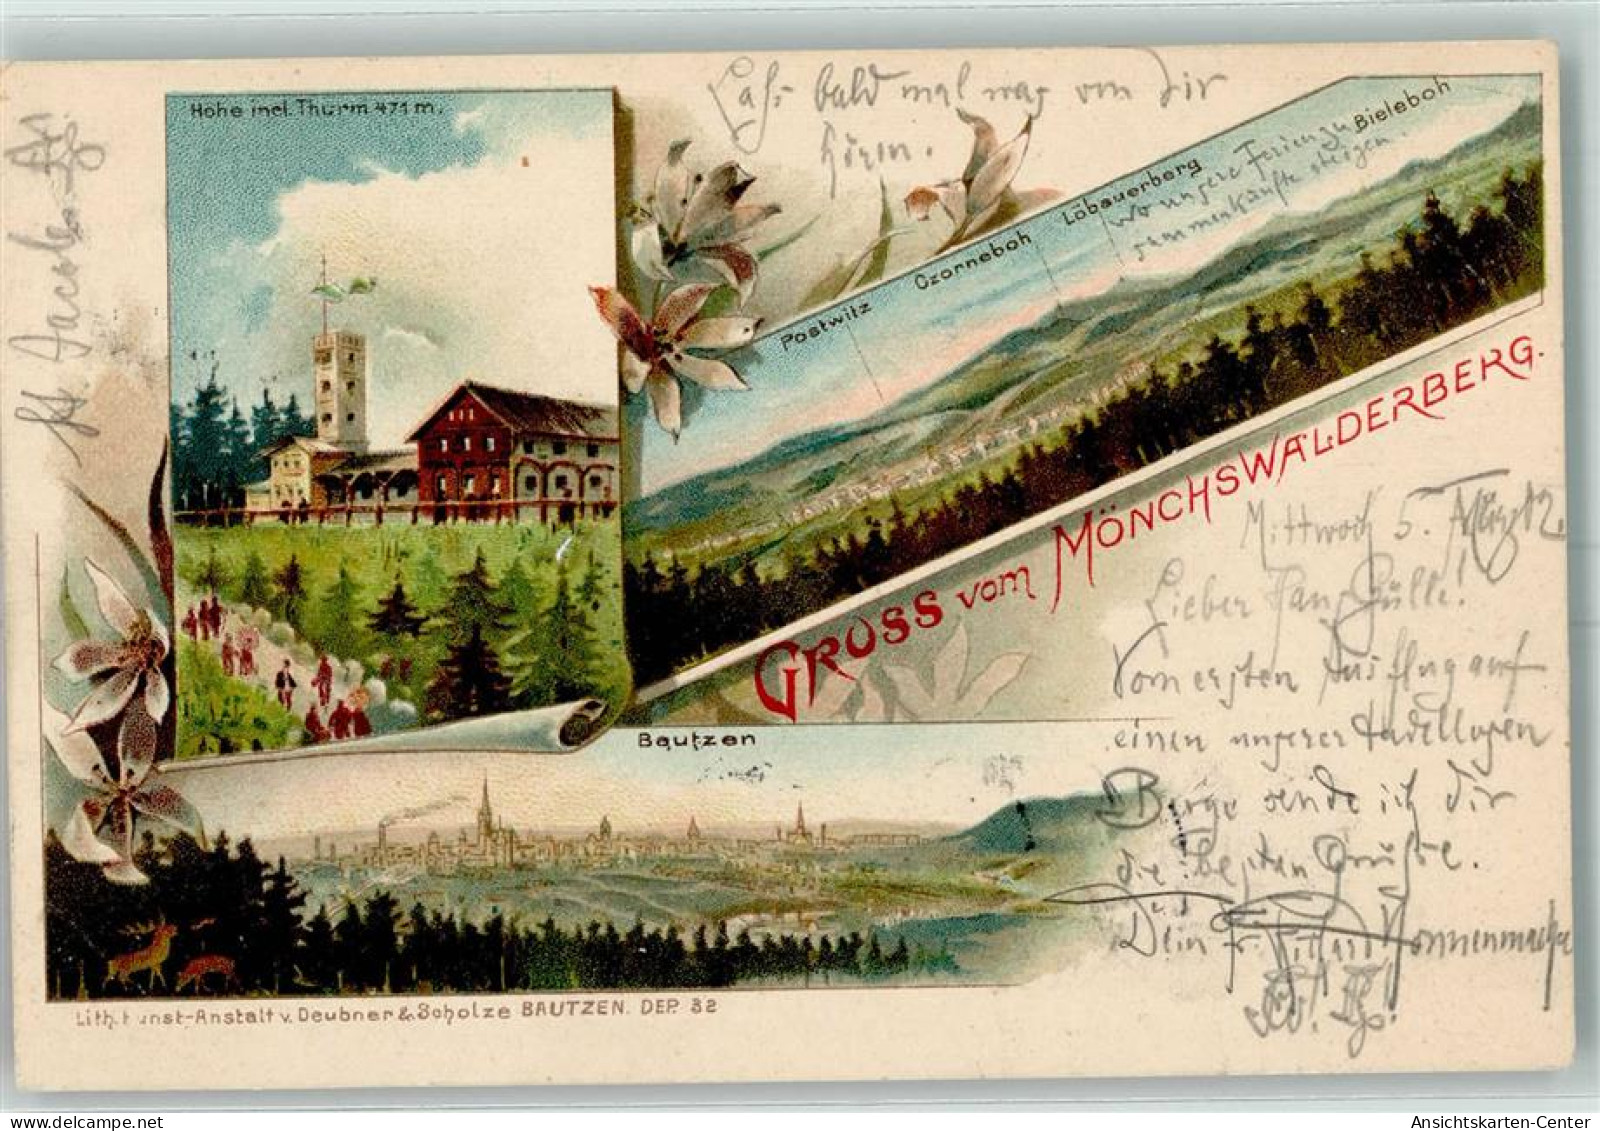 Höhe incl. Thurm 471 m.
Laß bald mal was von Dir
hören.
Postwitz
Czorneboh
Löbauerberg
Bieleboh
wo unsere Ferienzu
sammenkünfte steigen.
GRUSS vom MÖNCHSWALDERBERG.
Bautzen
Mittwoch 5.
Lieber
Vom ersten Ausflug auf
einen unserer tadellosen
Berge sende ich Dir
die besten Grüße.
Dein
Lith. Kunst-Anstalt v. Deubner & Scholze BAUTZEN. DEP. 32
Ansichtskarten-Center